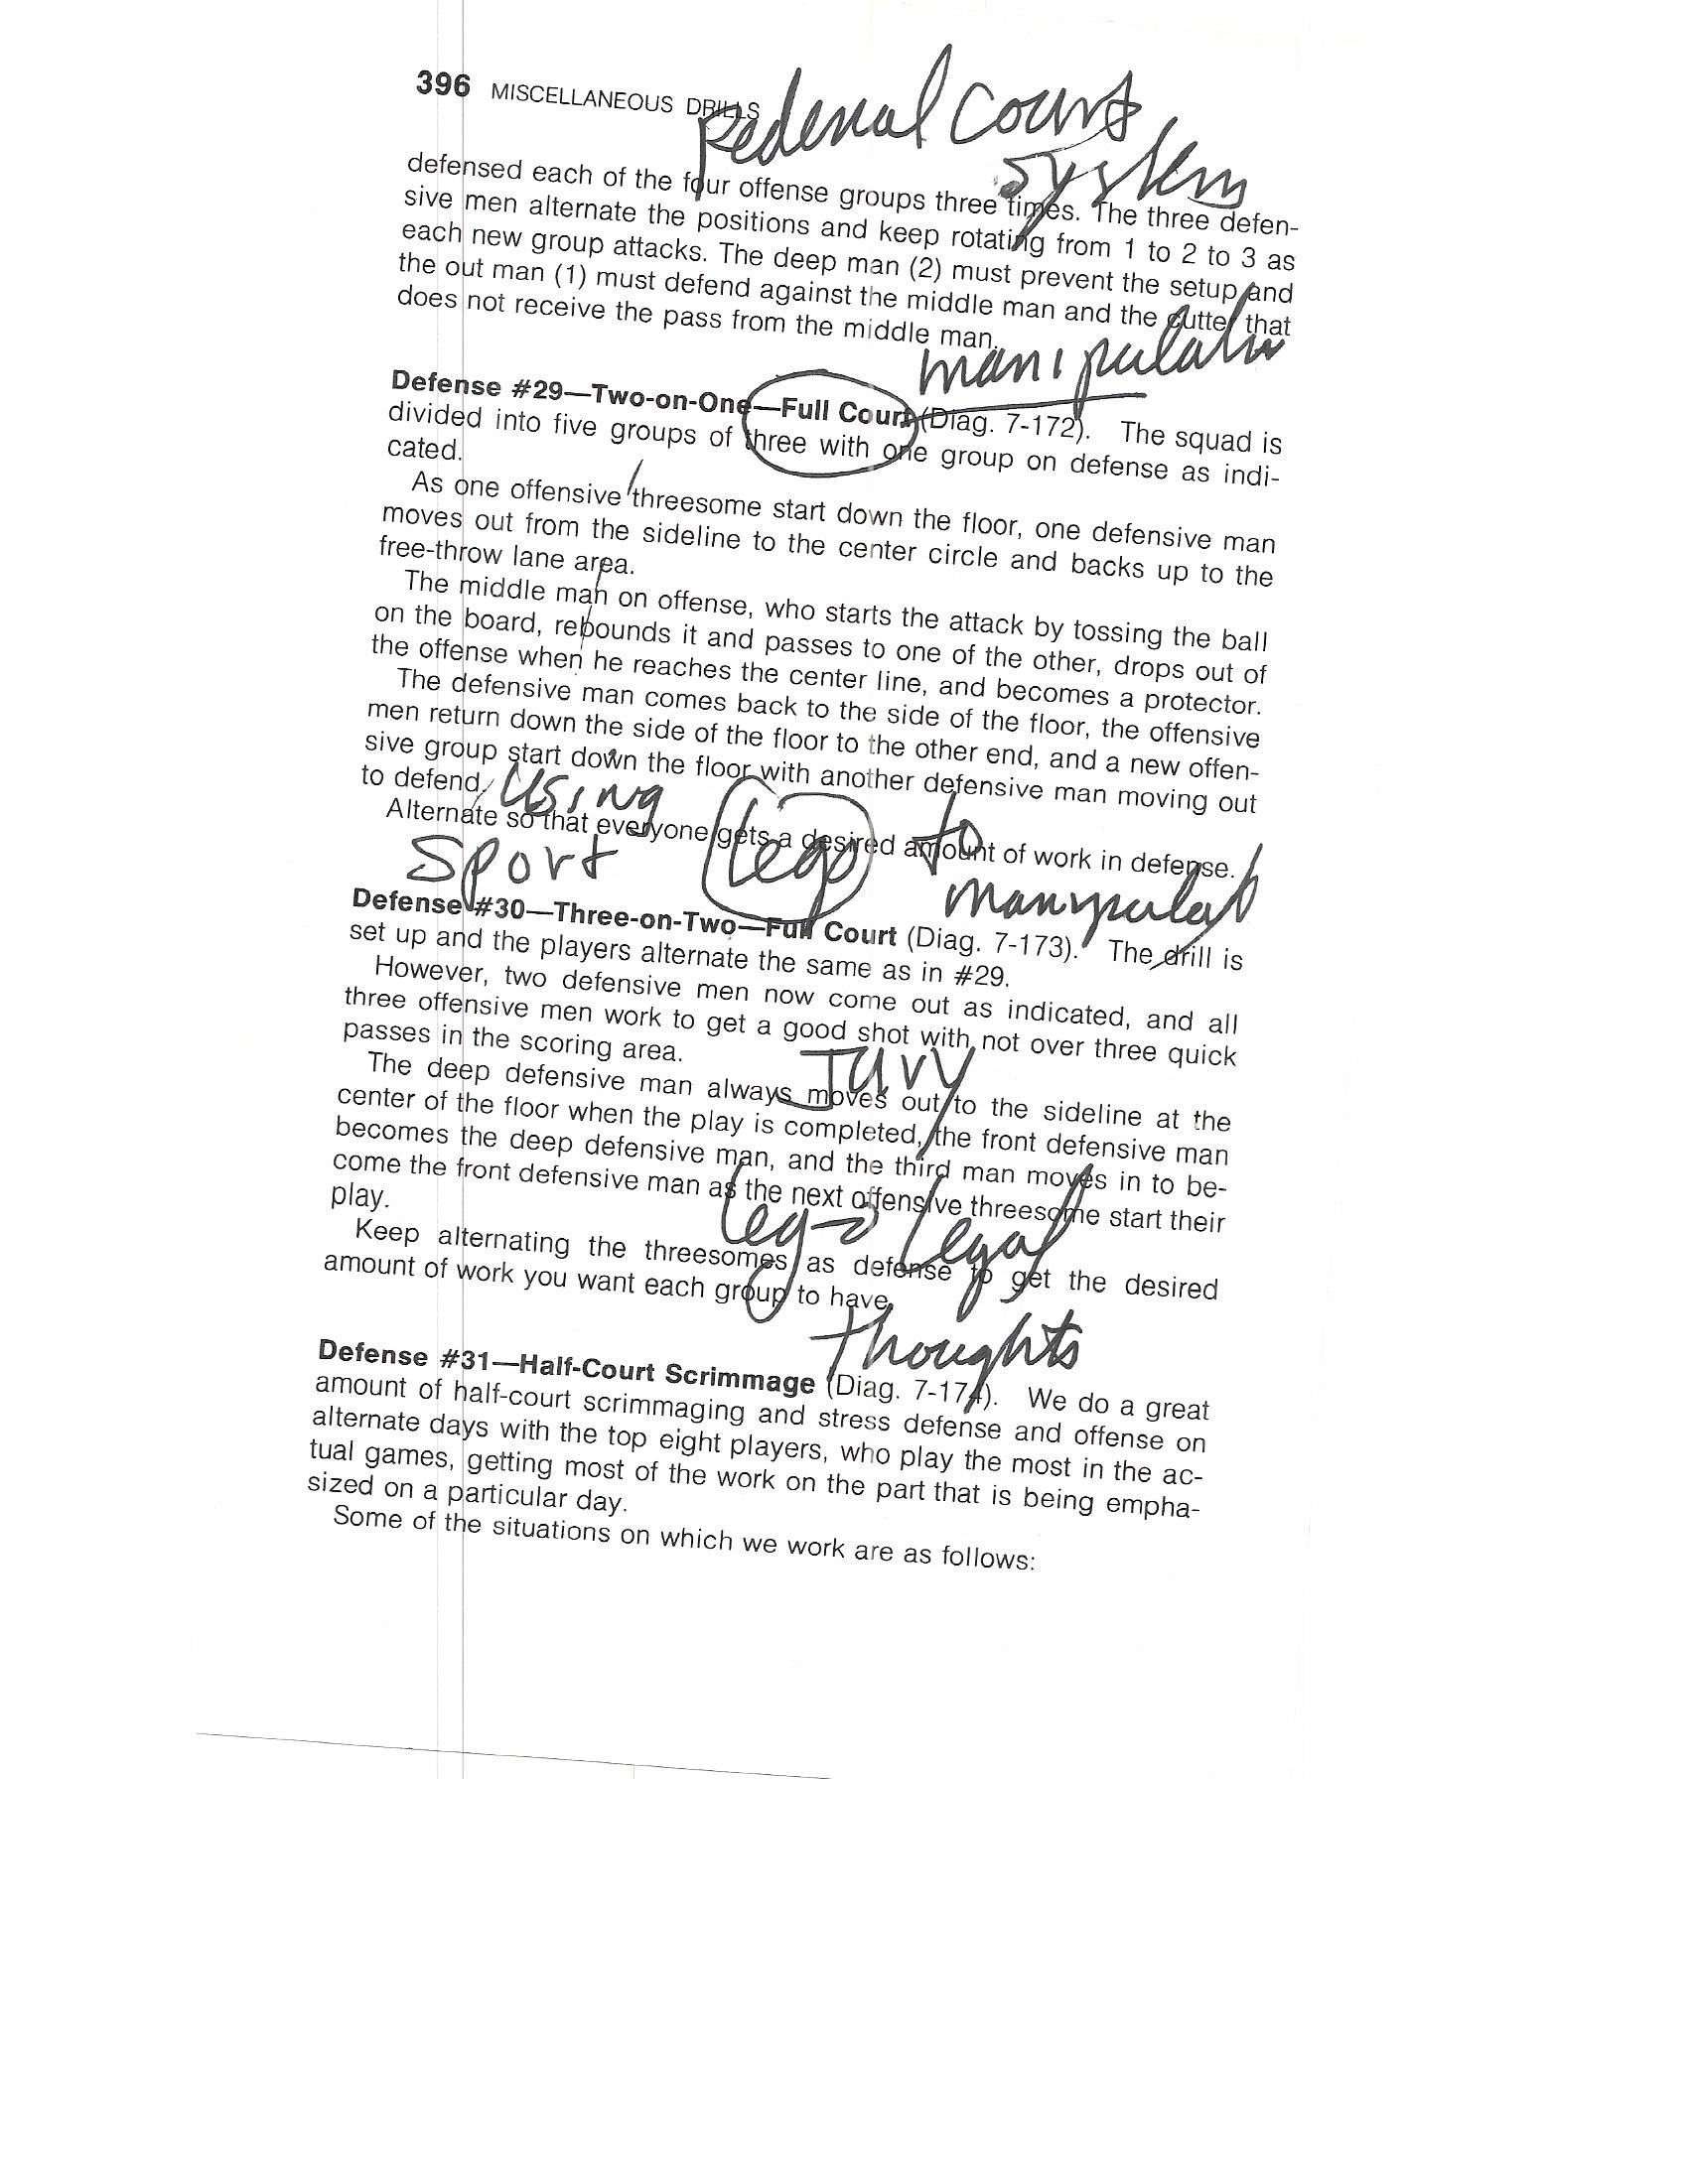 396 MISCELLANEOUS DRILLS
Federal Court
System
defensed each of the four offense groups three times. The three defen-
sive men alternate the positions and keep rotating from 1 to 2 to 3 as
each new group attacks. The deep man (2) must prevent the setup and
the out man (1) must defend against the middle man and the cutter that
does not receive the pass from the middle man.
Defense #29—Two-on-One—Full Court (Diag. 7-172). The squad is
divided into five groups of three with one group on defense as indi-
cated.
As one offensive threesome start down the floor, one defensive man
moves out from the sideline to the center circle and backs up to the
free-throw lane area.
The middle man on offense, who starts the attack by tossing the ball
on the board, rebounds it and passes to one of the other, drops out of
the offense when he reaches the center line, and becomes a protector.
The defensive man comes back to the side of the floor, the offensive
men return down the side of the floor to the other end, and a new offen-
sive group start down the floor with another defensive man moving out
to defend.
Using
Alternate so that everyone gets a desired amount of work in defense.
Sport Lego to
Defense #30—Three-on-Two—Full Court (Diag. 7-173). The drill is
set up and the players alternate the same as in #29.
However, two defensive men now come out as indicated, and all
three offensive men work to get a good shot with not over three quick
passes in the scoring area.
Jury
The deep defensive man always moves out to the sideline at the
center of the floor when the play is completed, the front defensive man
becomes the deep defensive man, and the third man moves in to be-
come the front defensive man as the next offensive threesome start their
play.
Lego Legal
Keep alternating the threesomes as defense to get the desired
amount of work you want each group to have.
Thoughts
Defense #31—Half-Court Scrimmage (Diag. 7-174). We do a great
amount of half-court scrimmaging and stress defense and offense on
alternate days with the top eight players, who play the most in the ac-
tual games, getting most of the work on the part that is being empha-
sized on a particular day.
Some of the situations on which we work are as follows: